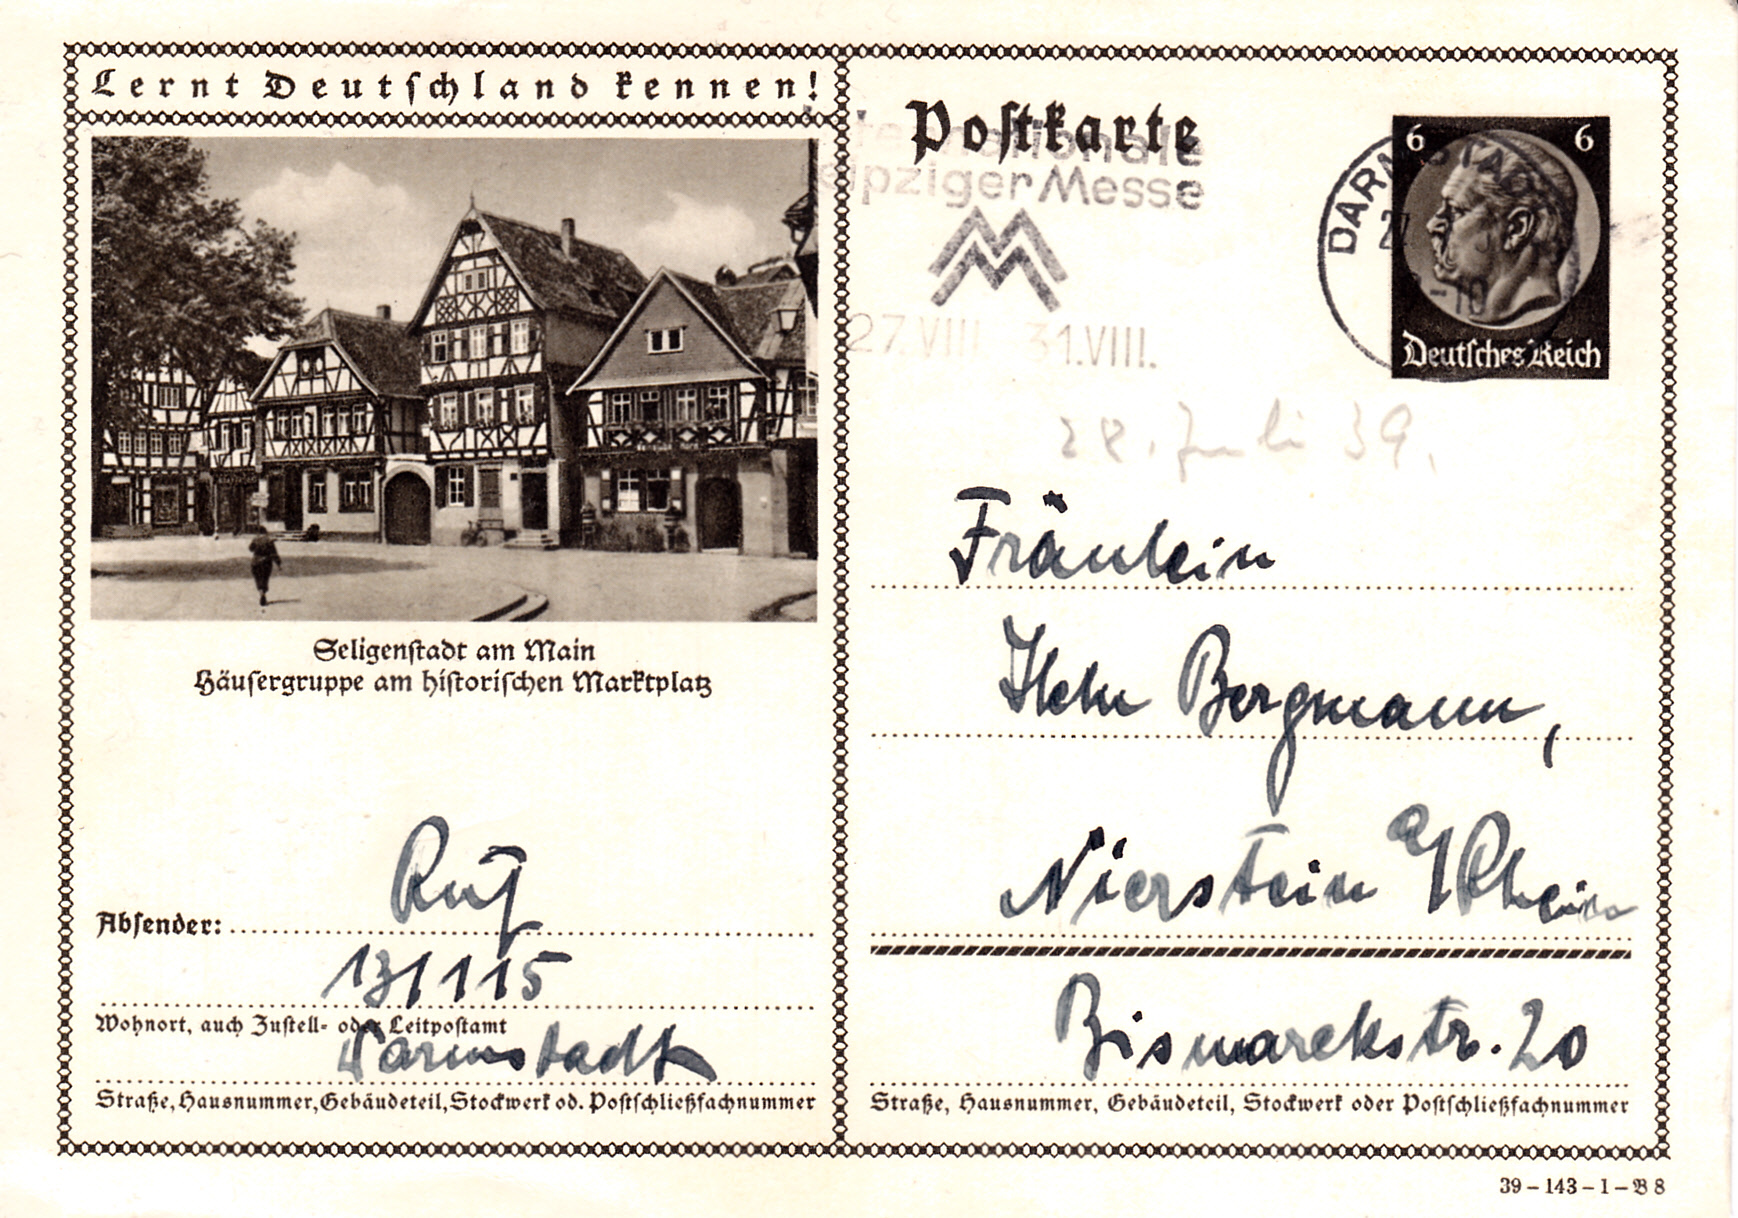 Lernt Deutschland kennen!
Seligenstadt am Main
Häusergruppe am historischen Marktplatz
Absender:
13/115
Wohnort, auch Zustell- oder Leitpostamt
Darmstadt
Straße, Hausnummer, Gebäudeteil, Stockwerk od. Postschließfachnummer
Postkarte
Leipziger Messe
27.VIII 31.VIII.
6 6
Deutsches Reich
28. Juli 39.
Fräulein
Bergmann,
Nierstein a/Rhein
Bismarckstr. 20
Straße, Hausnummer, Gebäudeteil, Stockwerk oder Postschließfachnummer
39 - 143 - 1 - B 8